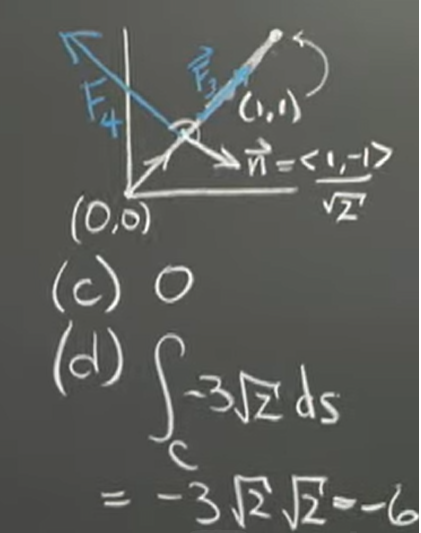 F₄
F⃗₃
(1,1)
n⃗ = <1,-1>
√2
(0,0)
(c) 0
(d) ∫_C -3√2 ds
= -3√2 √2 = -6